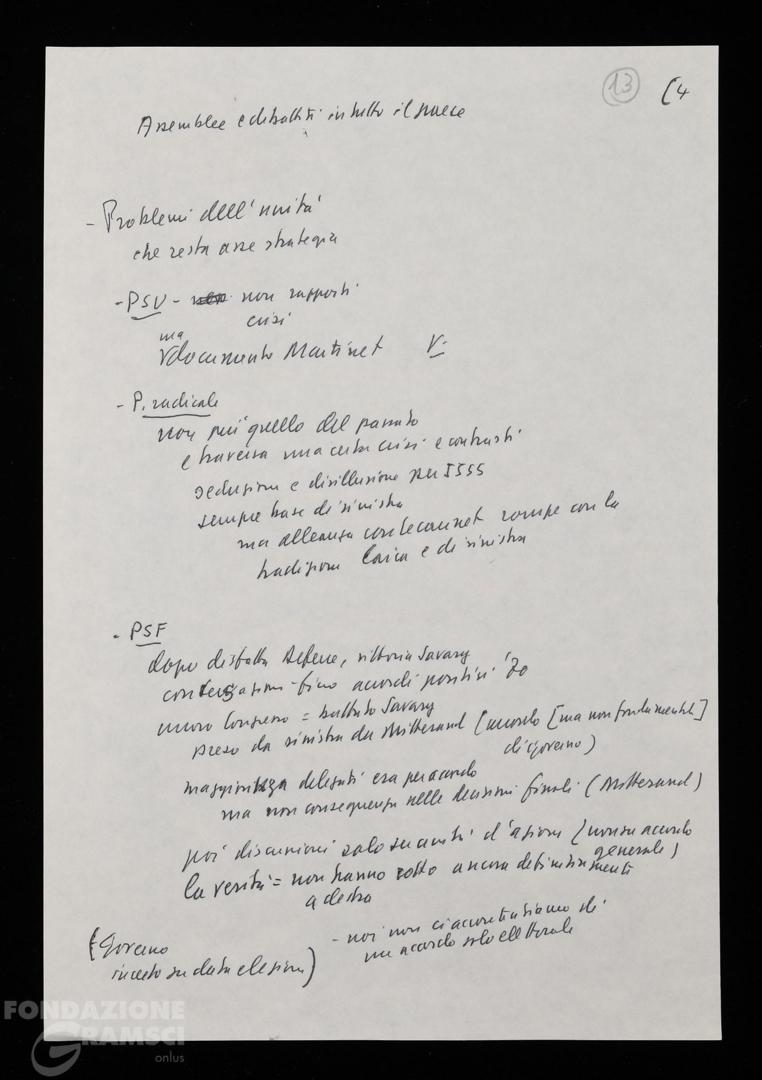 13 (4
Assemblee e dibattiti in tutto il paese
- Problemi dell'unità
che resta asse strategia
- PSU - non rapporti
crisi
ma
documento Martinet V.
- P. radicale
non più quello del passato
e traversa una certa crisi e contrasti
seduzione e disillusione per JJSS
sempre base di sinistra
ma alleanza con Lecanuet rompe con la
tradizione laica e di sinistra
- PSF
dopo disfatta Deferre, vittoria Savary
conversazioni - fino accordi positivi '70
nuovo Congresso = battuto Savary
preso da sinistra da Mitterand (accordo [ma non fondamentale]
di governo)
maggioranza delegati era per accordo
ma non conseguenza nelle decisioni finali (Mitterand)
poi discussioni solo su unità d'azione (non su accordo
generale)
la verità = non hanno rotto ancora definitivamente
a destra
- noi non ci accontentiamo di
un accordo solo elettorale
(Governo
incerto su data elezioni)
FONDAZIONE
GRAMSCI
onlus